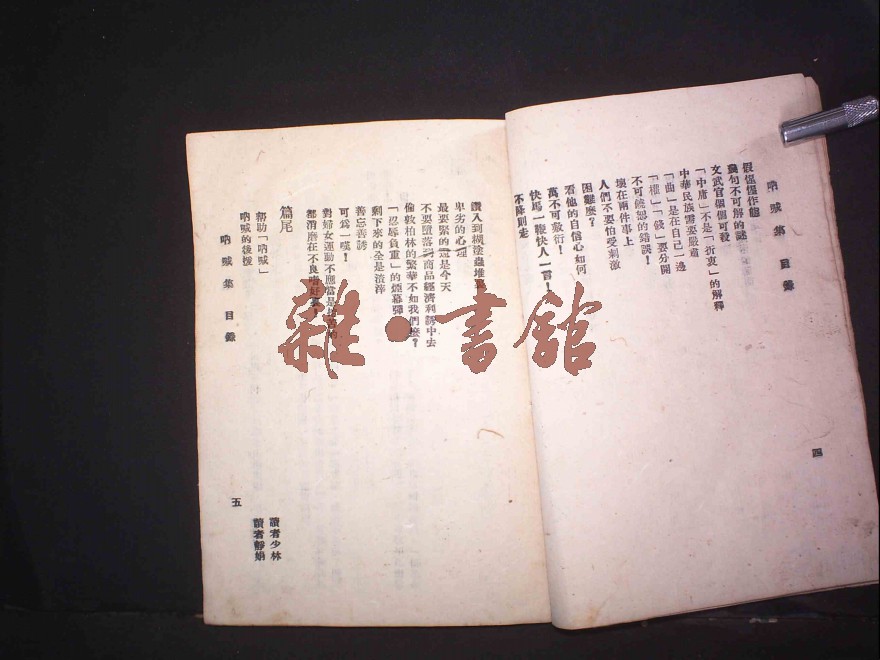 吶喊集 目錄
假惺惺作態
幾句不可解的謎
文武官個個可殺
「中庸」不是「折衷」的解釋
中華民族需要嚴道
「曲」是在自己一邊
「權」「錢」要分開
不可饒恕的錯誤！
壞在兩件事上
人們不要怕受刺激
困難麼？
看他的自信心如何
萬不可敷衍！
快馬一鞭快人一言！
不降則走
四
鑽入到糊塗蟲堆裏
卑劣的心理
最要緊的還是今天
不要墮落到商品經濟利誘中去
倫敦柏林的繁華不如我們麼？
「忍辱負重」的煙幕彈
剩下來的全是渣滓
善忘善誘
可爲一嘆！
對婦女運動不應當是
都消磨在不良嗜好裏！
篇尾
幫助「吶喊」 讀者少林
吶喊的後援 讀者靜娟
吶喊集 目錄
五
雜·書館